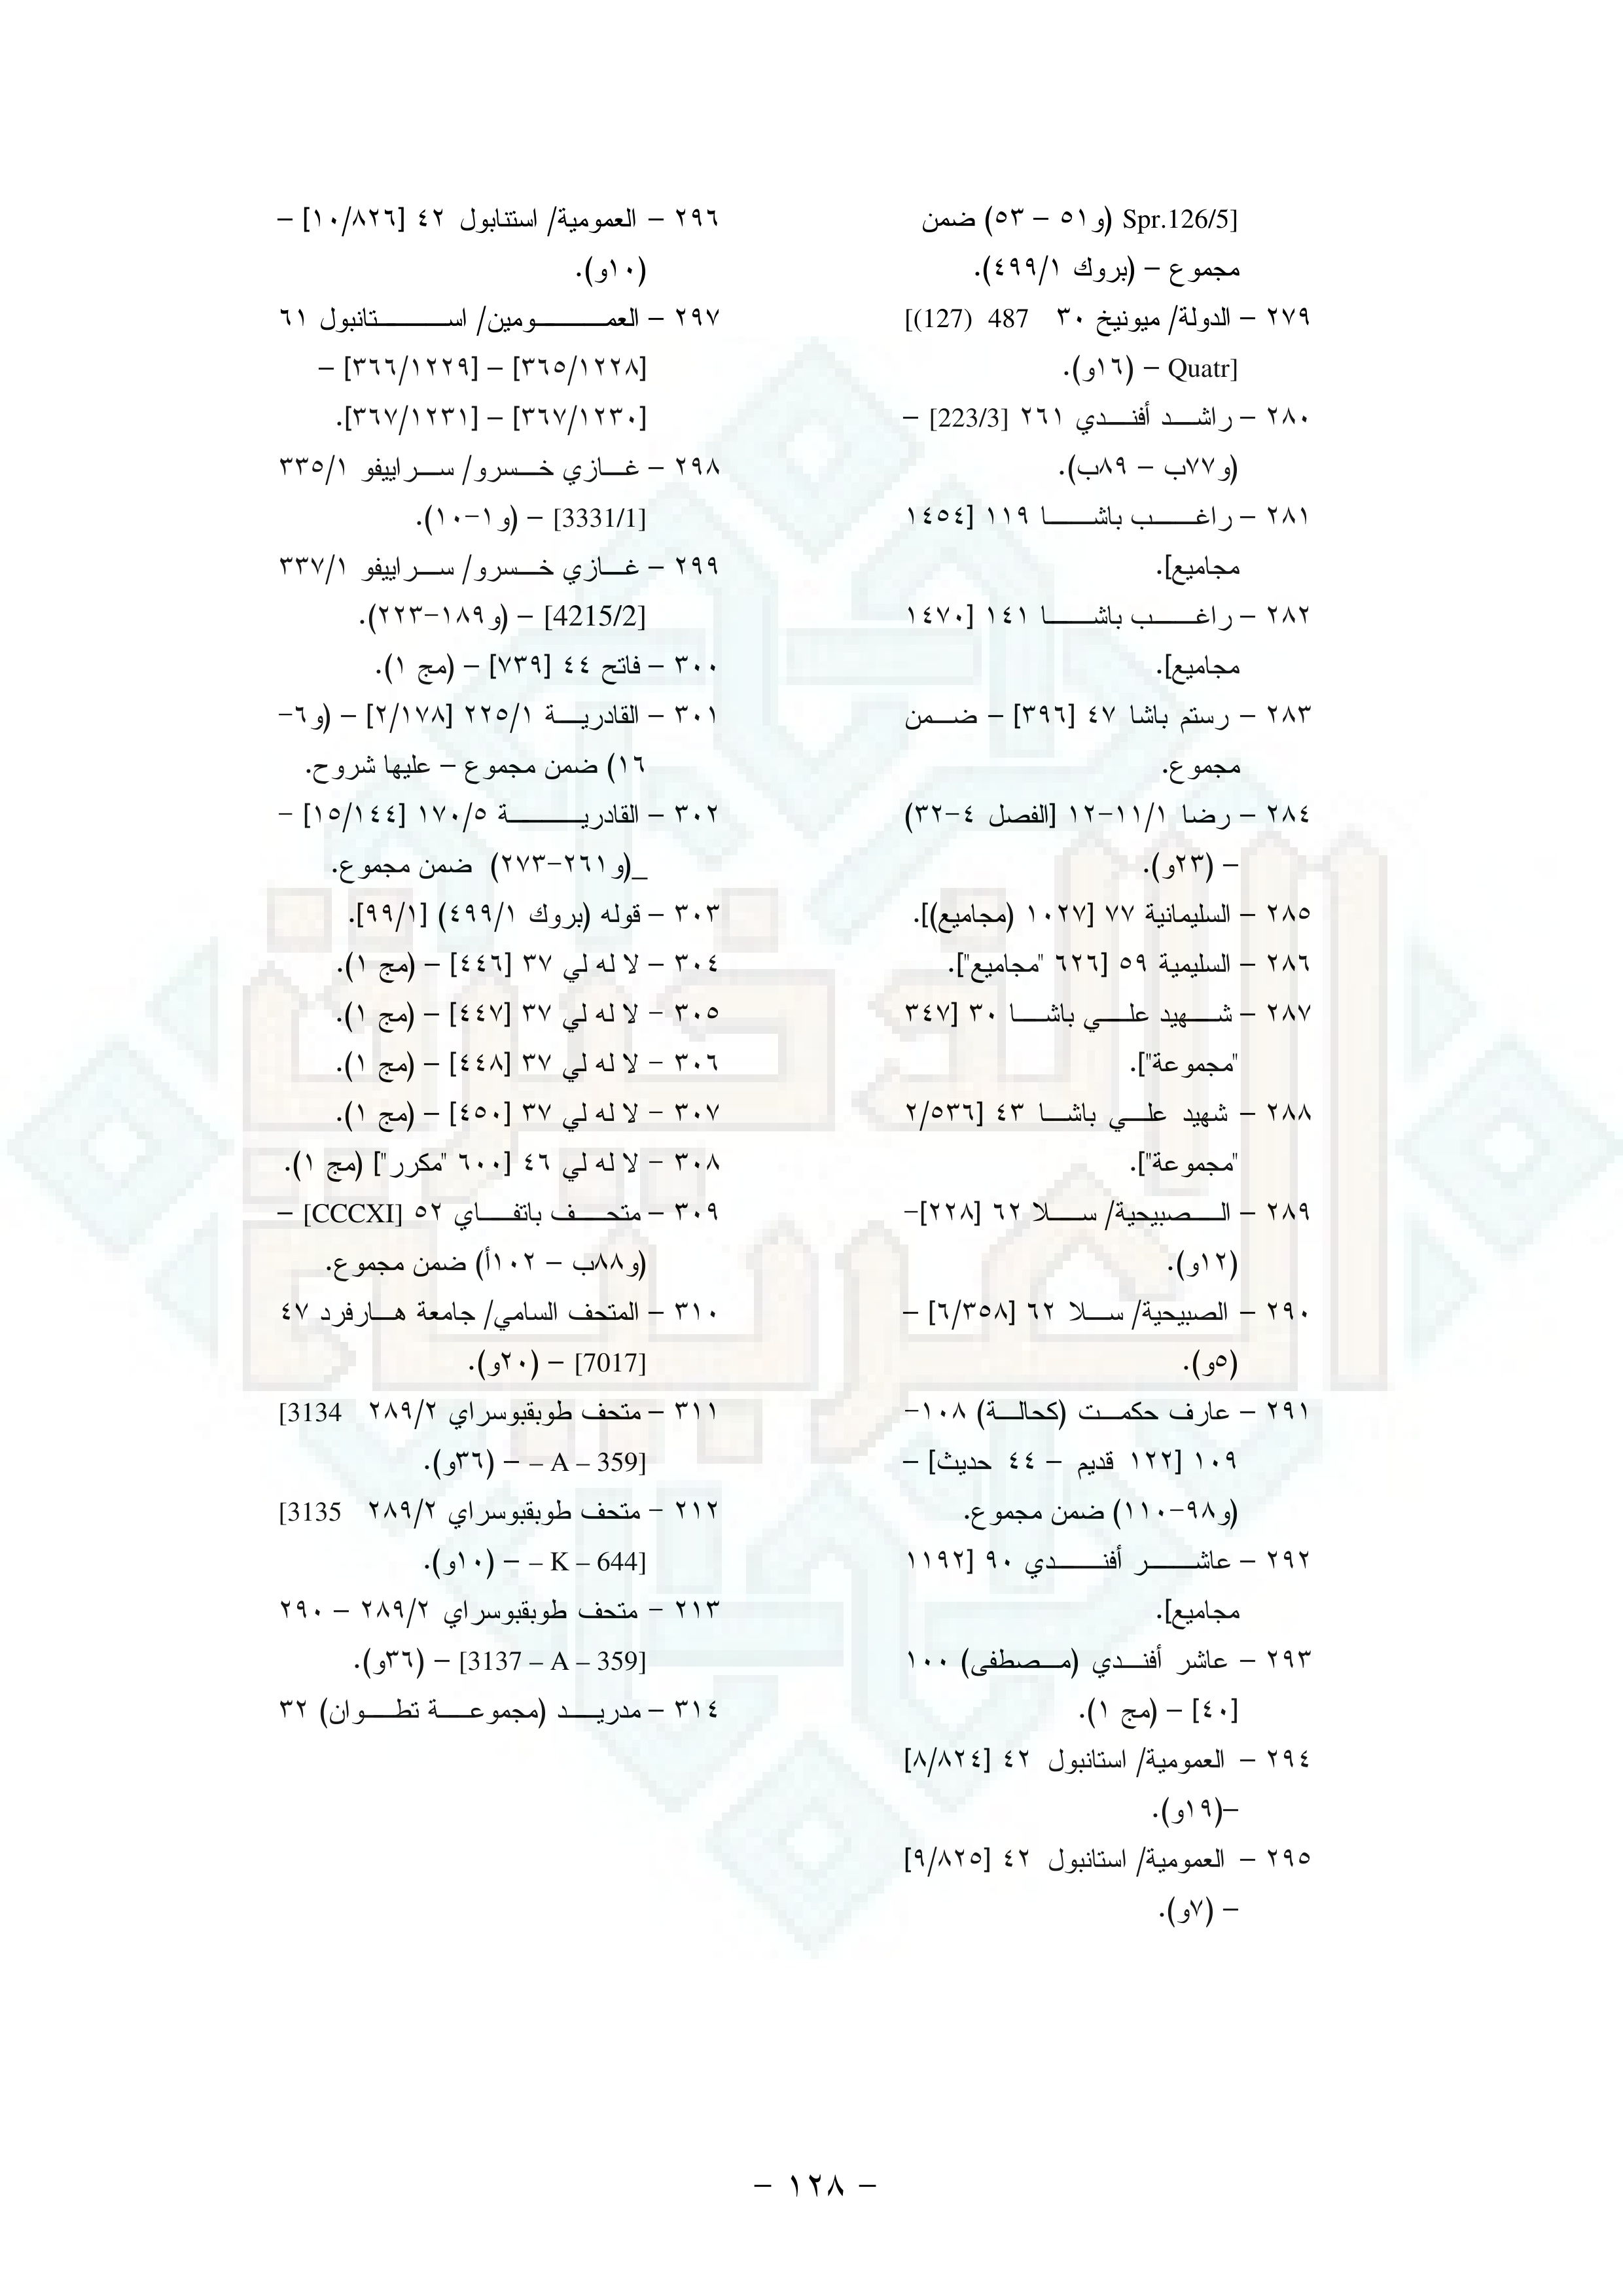 [Spr.126/5 (و٥١ – ٥٣) ضمن
مجموع – (بروك ٤٩٩/١).
٢٧٩ – الدولة/ ميونيخ ٣٠ 487 (127)]
[Quatr – (١٦و).
٢٨٠ – راشد أفندي ٢٦١ [223/3] –
(و٧٧ب – ٨٩ب).
٢٨١ – راغب باشا ١١٩ [١٤٥٤
مجاميع].
٢٨٢ – راغب باشا ١٤١ [١٤٧٠
مجاميع].
٢٨٣ – رستم باشا ٤٧ [٣٩٦] – ضمن
مجموع.
٢٨٤ – رضا ١١/١-١٢ [الفصل ٤-٣٢)
– (٢٣و).
٢٨٥ – السليمانية ٧٧ [١٠٢٧ (مجاميع)].
٢٨٦ – السليمية ٥٩ [٦٢٦ "مجاميع"].
٢٨٧ – شهيد علي باشا ٣٠ [٣٤٧
"مجموعة"].
٢٨٨ – شهيد علي باشا ٤٣ [٢/٥٣٦
"مجموعة"].
٢٨٩ – الصبيحية/ سلا ٦٢ [٢٢٨]-
(١٢و).
٢٩٠ – الصبيحية/ سلا ٦٢ [٦/٣٥٨] –
(٥و).
٢٩١ – عارف حكمت (كحالة) ١٠٨-
١٠٩ [١٢٢ قديم – ٤٤ حديث] –
(و٩٨-١١٠) ضمن مجموع.
٢٩٢ – عاشر أفندي ٩٠ [١١٩٢
مجاميع].
٢٩٣ – عاشر أفندي (مصطفى) ١٠٠
[٤٠] – (مج ١).
٢٩٤ – العمومية/ استانبول ٤٢ [٨/٨٢٤]
–(١٩و).
٢٩٥ – العمومية/ استانبول ٤٢ [٩/٨٢٥]
– (٧و).
٢٩٦ – العمومية/ استتنابول ٤٢ [١٠/٨٢٦] –
(١٠و).
٢٩٧ – العمومين/ استانبول ٦١
[٣٦٥/١٢٢٨] – [٣٦٦/١٢٢٩] –
[٣٦٧/١٢٣٠] – [٣٦٧/١٢٣١].
٢٩٨ – غازي خسرو/ سراييفو ٣٣٥/١
[3331/1] – (و١-١٠).
٢٩٩ – غازي خسرو/ سراييفو ٣٣٧/١
[4215/2] – (و١٨٩-٢٢٣).
٣٠٠ – فاتح ٤٤ [٧٣٩] – (مج ١).
٣٠١ – القادرية ٢٢٥/١ [٢/١٧٨] – (و٦-
١٦) ضمن مجموع – عليها شروح.
٣٠٢ – القادرية ١٧٠/٥ [١٥/١٤٤] –
_(و٢٦١-٢٧٣) ضمن مجموع.
٣٠٣ – قوله (بروك ٤٩٩/١) [٩٩/١].
٣٠٤ – لا له لي ٣٧ [٤٤٦] – (مج ١).
٣٠٥ – لا له لي ٣٧ [٤٤٧] – (مج ١).
٣٠٦ – لا له لي ٣٧ [٤٤٨] – (مج ١).
٣٠٧ – لا له لي ٣٧ [٤٥٠] – (مج ١).
٣٠٨ – لا له لي ٤٦ [٦٠٠ "مكرر"] (مج ١).
٣٠٩ – متحف باتفاي ٥٢ [CCCXI] –
(و٨٨ب – ١٠٢أ) ضمن مجموع.
٣١٠ – المتحف السامي/ جامعة هارفرد ٤٧
[7017] – (٢٠و).
٣١١ – متحف طوبقبوسراي ٢٨٩/٢ 3134]
[– A – 359 – (٣٦و).
٢١٢ – متحف طوبقبوسراي ٢٨٩/٢ 3135]
[– K – 644 – (١٠و).
٢١٣ – متحف طوبقبوسراي ٢٨٩/٢ – ٢٩٠
[3137 – A – 359] – (٣٦و).
٣١٤ – مدريد (مجموعة تطوان) ٣٢
– ١٢٨ –